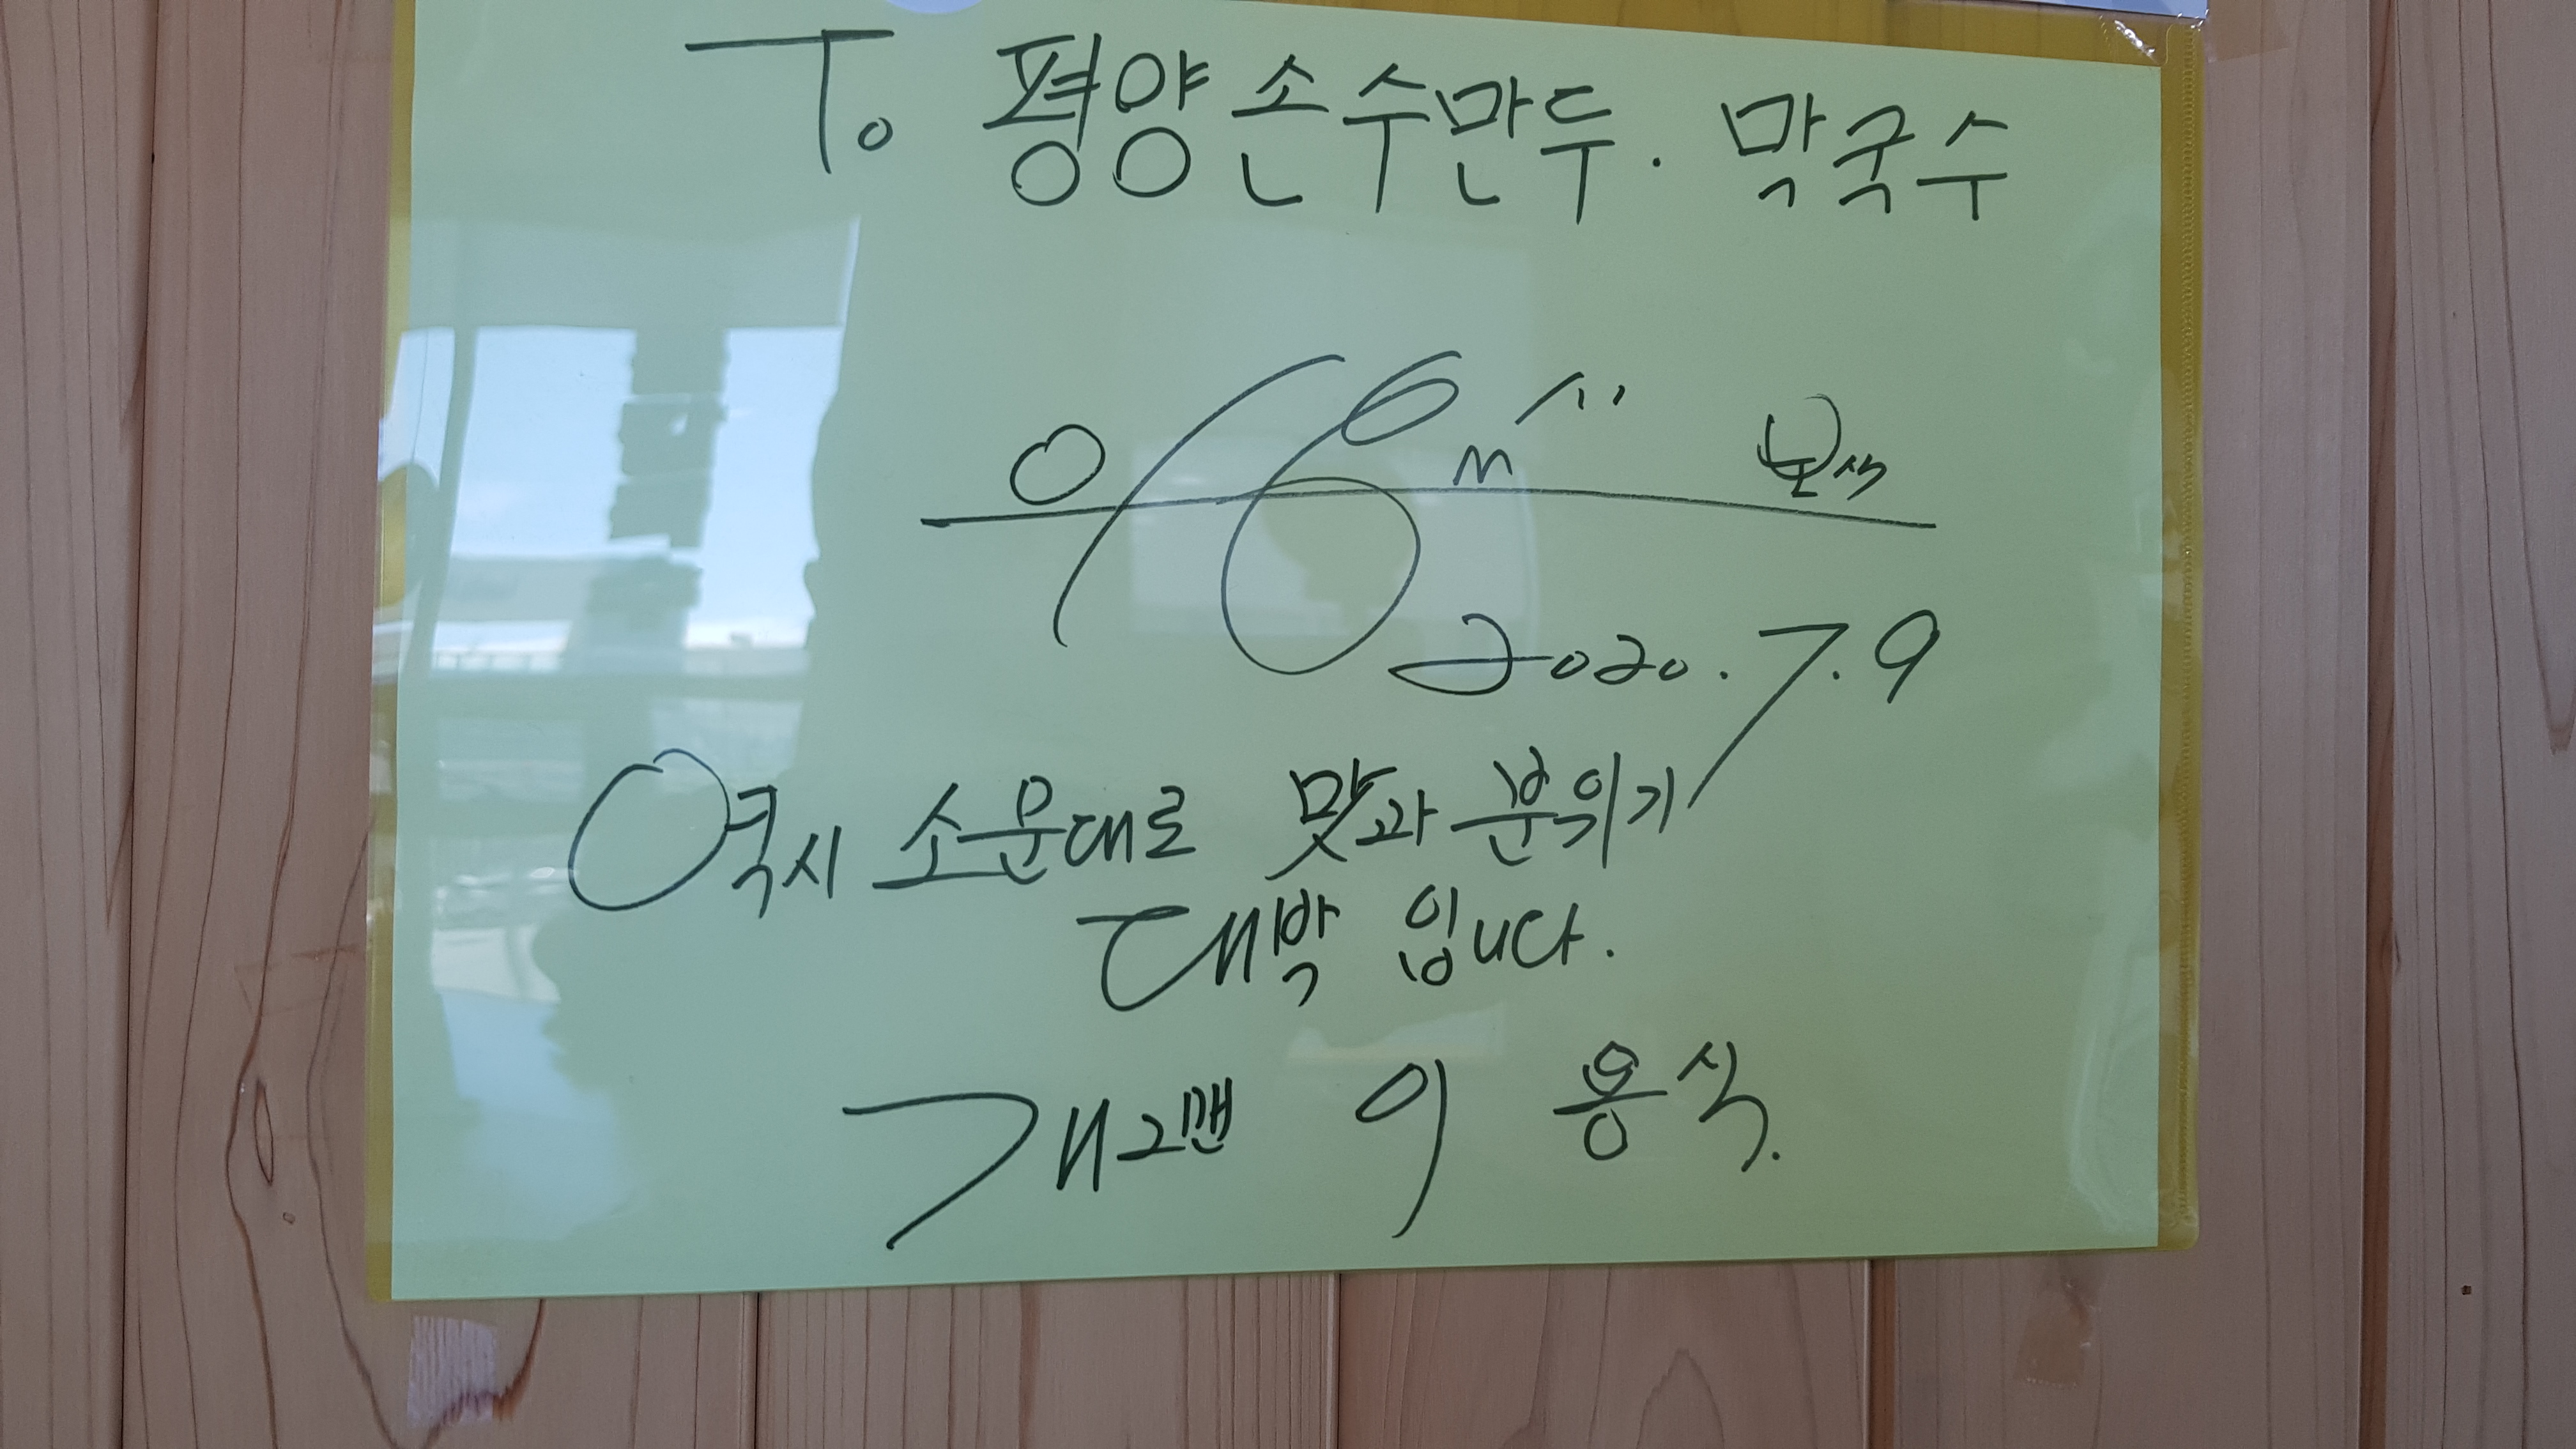 To 평양손수만두. 막국수
2020.7.9
역시 소문대로 맛과 분위기
대박 입니다.
개그맨 이 용식.